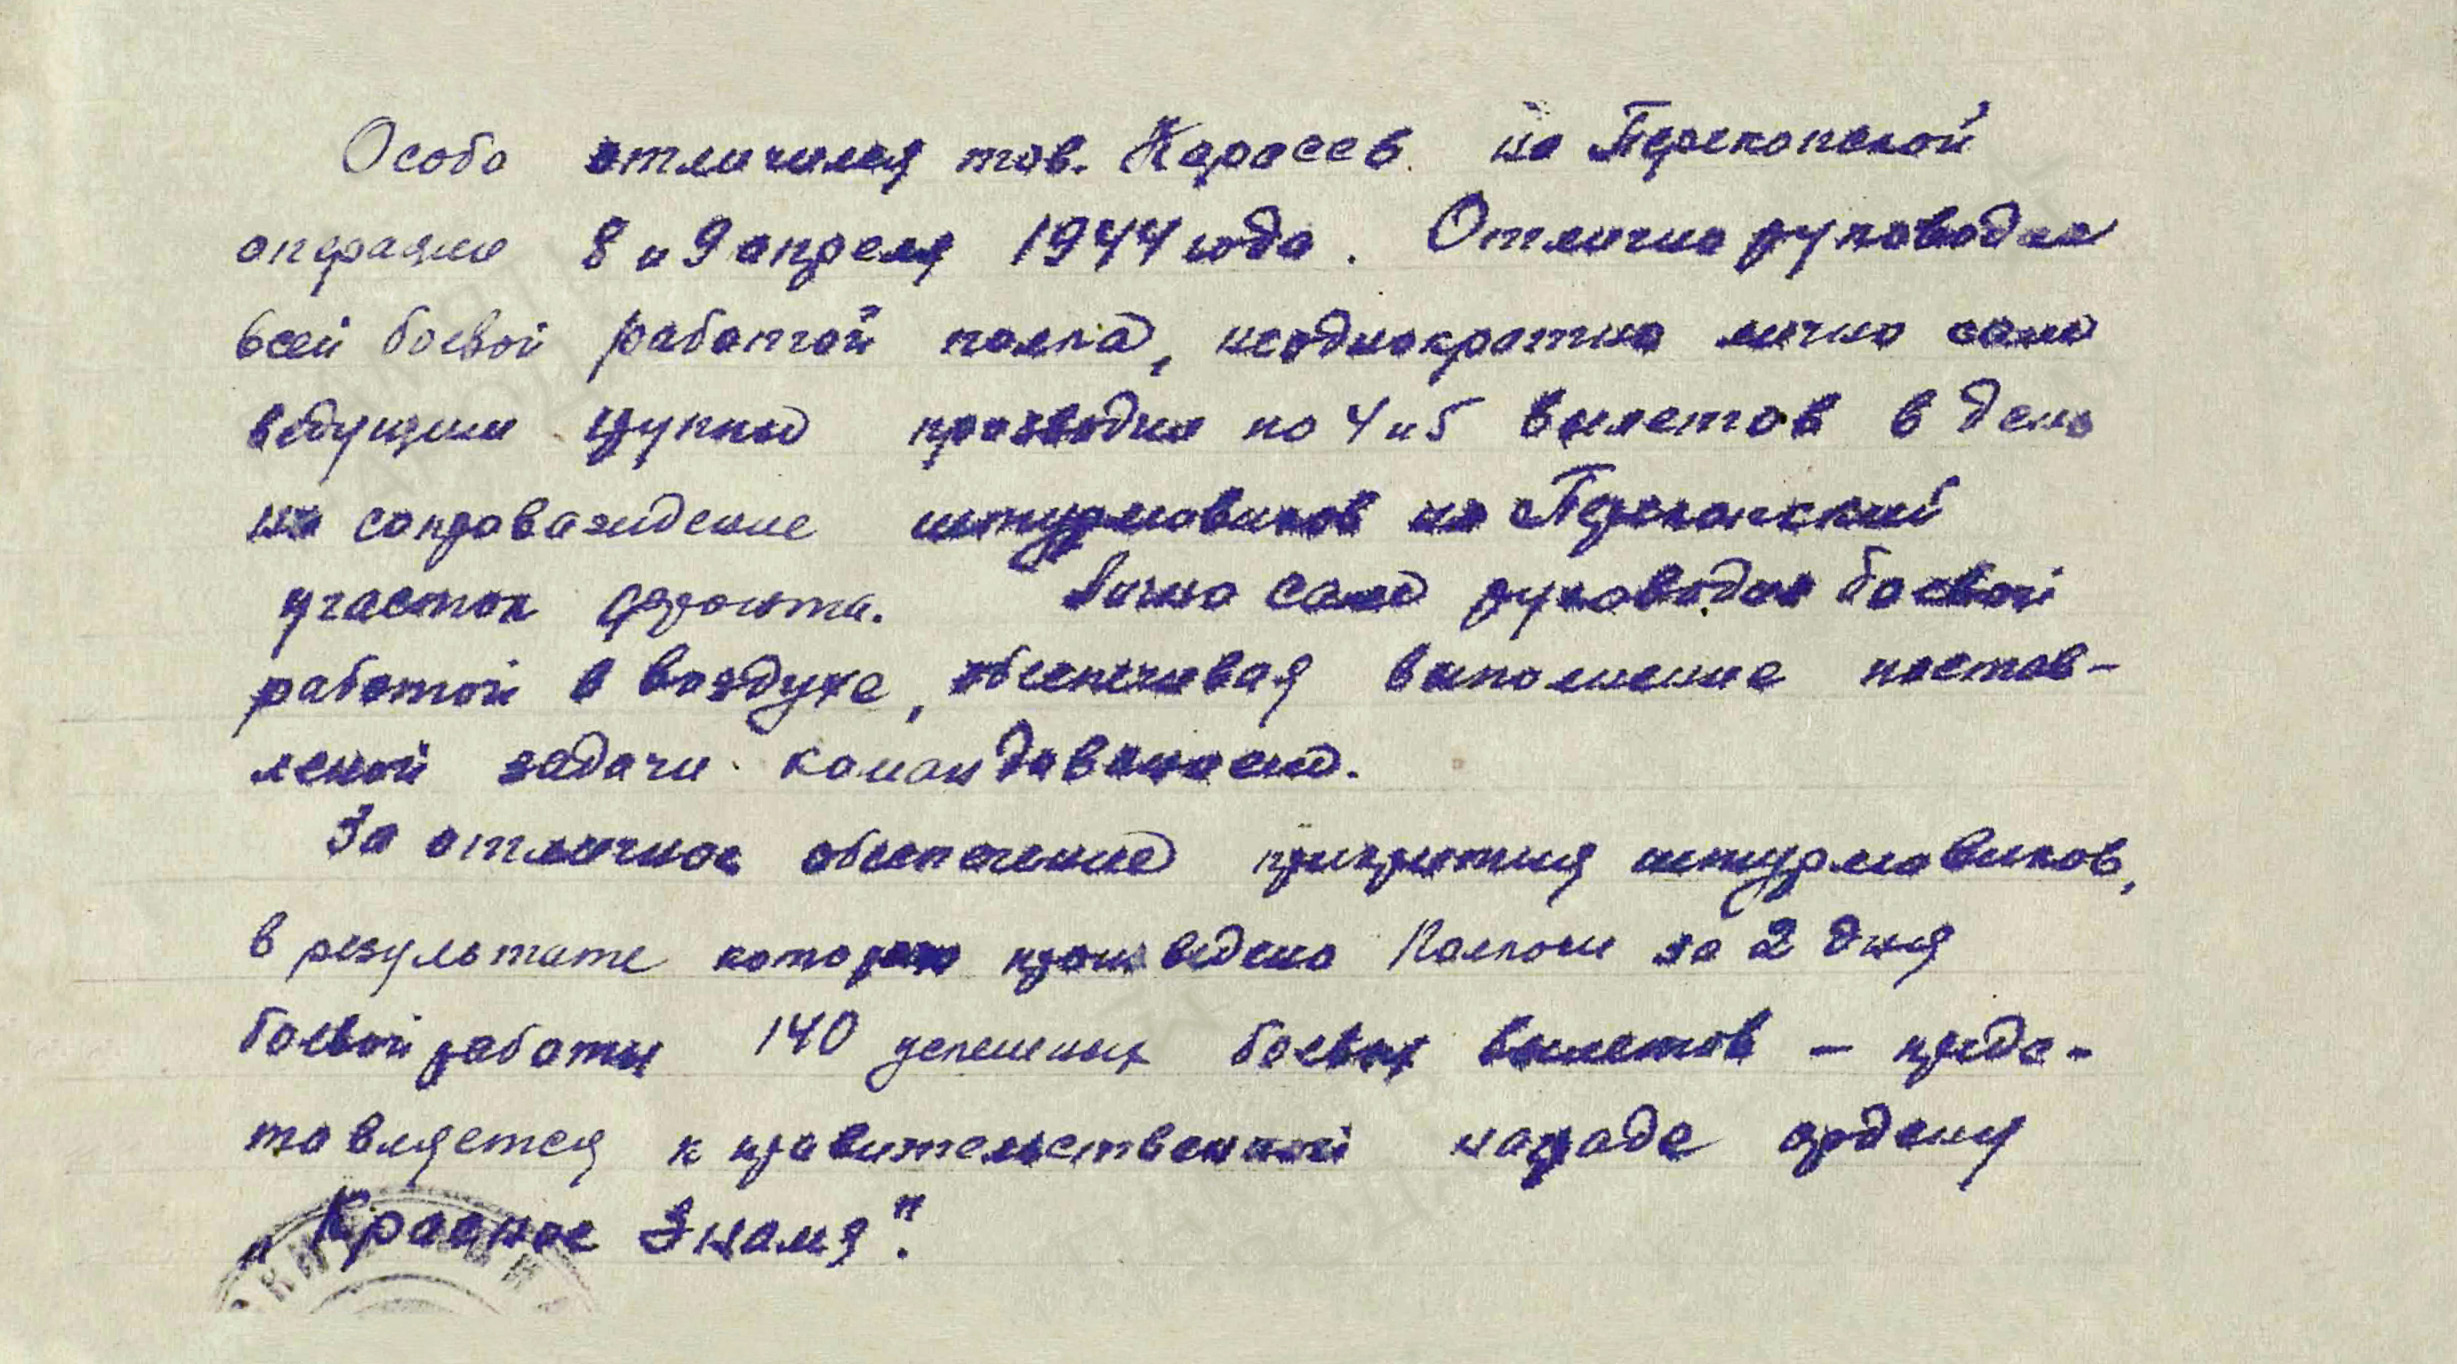 Особо отличился тов. Карасев на Перекопской
операции 8 и 9 апреля 1944 года. Отлично руководил
всей боевой работой полка, неоднократно лично сам
ведущим групп производил по 4 и 5 вылетов в день
на сопроваждение штурмовиков на Перекопский
участок фронта. Лично сам руководил боевой
работой в воздухе, обеспечивая выполнение постав-
леной задачи командованием.
За отличное обеспечение прикрытия штурмовиков,
в результате которого произведено Полком за 2 дня
боевой работы 140 успешных боевых вылетов – предс-
тавляется к правительственной награде ордену
„Красное Знамя".